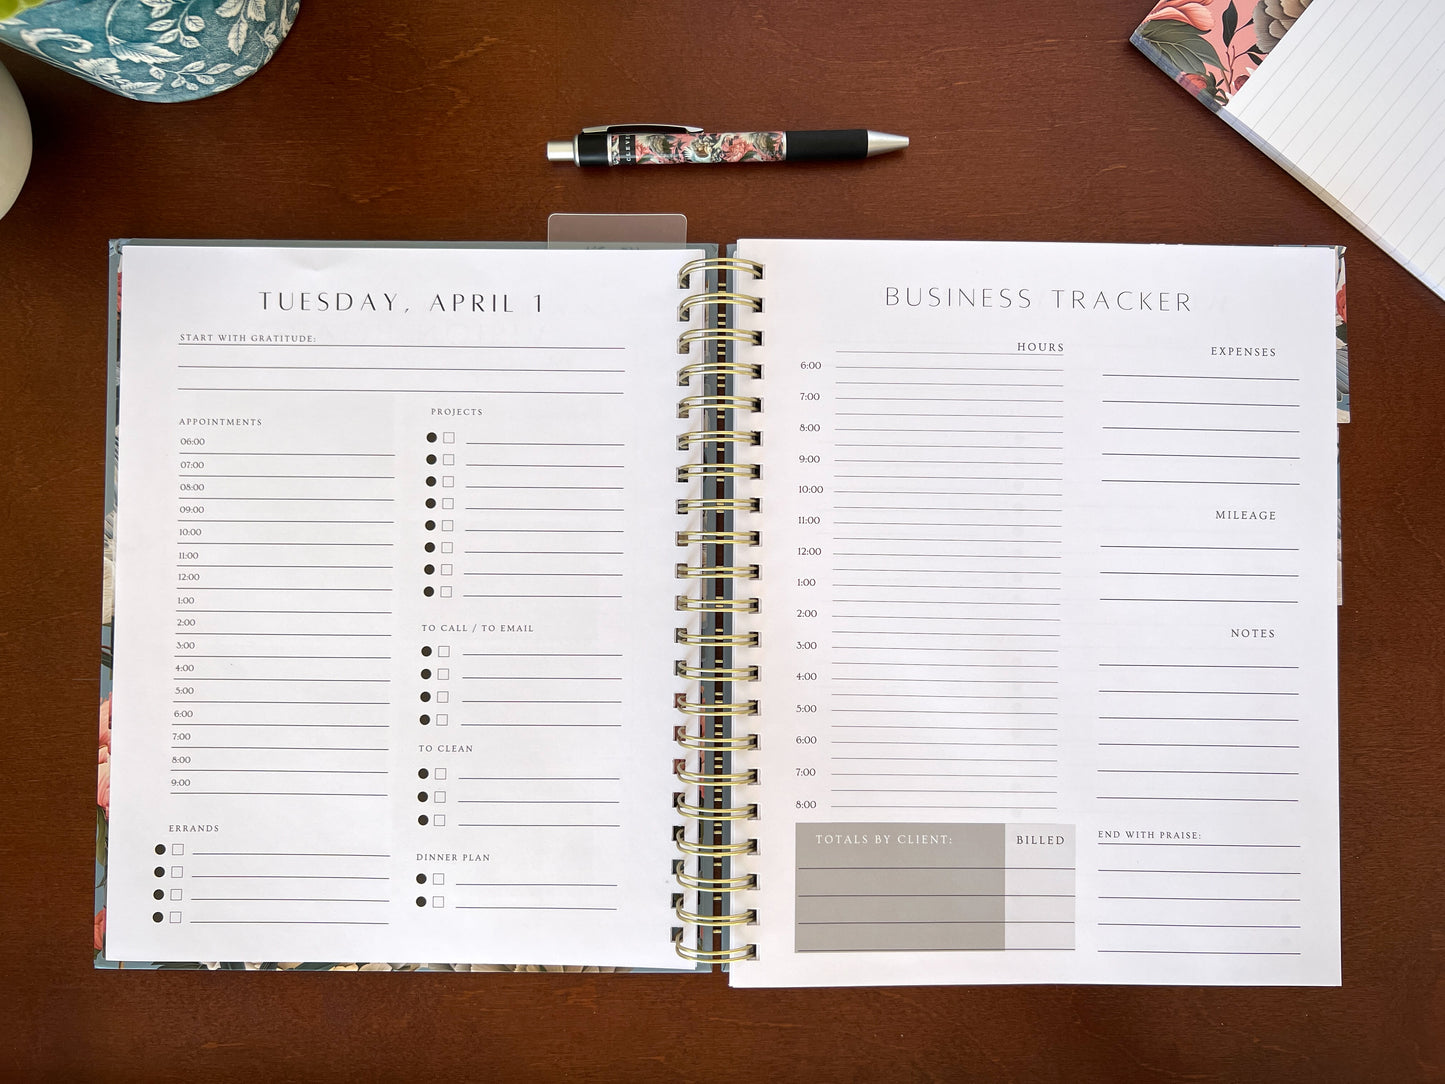 CLEVE
TUESDAY, APRIL 1
START WITH GRATITUDE:
APPOINTMENTS
06:00
07:00
08:00
09:00
10:00
11:00
12:00
1:00
2:00
3:00
4:00
5:00
6:00
7:00
8:00
9:00
ERRANDS
PROJECTS
TO CALL / TO EMAIL
TO CLEAN
DINNER PLAN
BUSINESS TRACKER
HOURS
6:00
7:00
8:00
9:00
10:00
11:00
12:00
1:00
2:00
3:00
4:00
5:00
6:00
7:00
8:00
TOTALS BY CLIENT:
BILLED
EXPENSES
MILEAGE
NOTES
END WITH PRAISE: